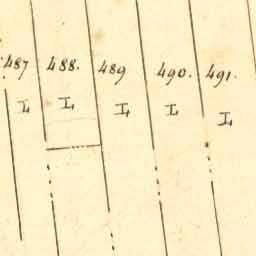 487 488. 489 490. 491.
L L L L L